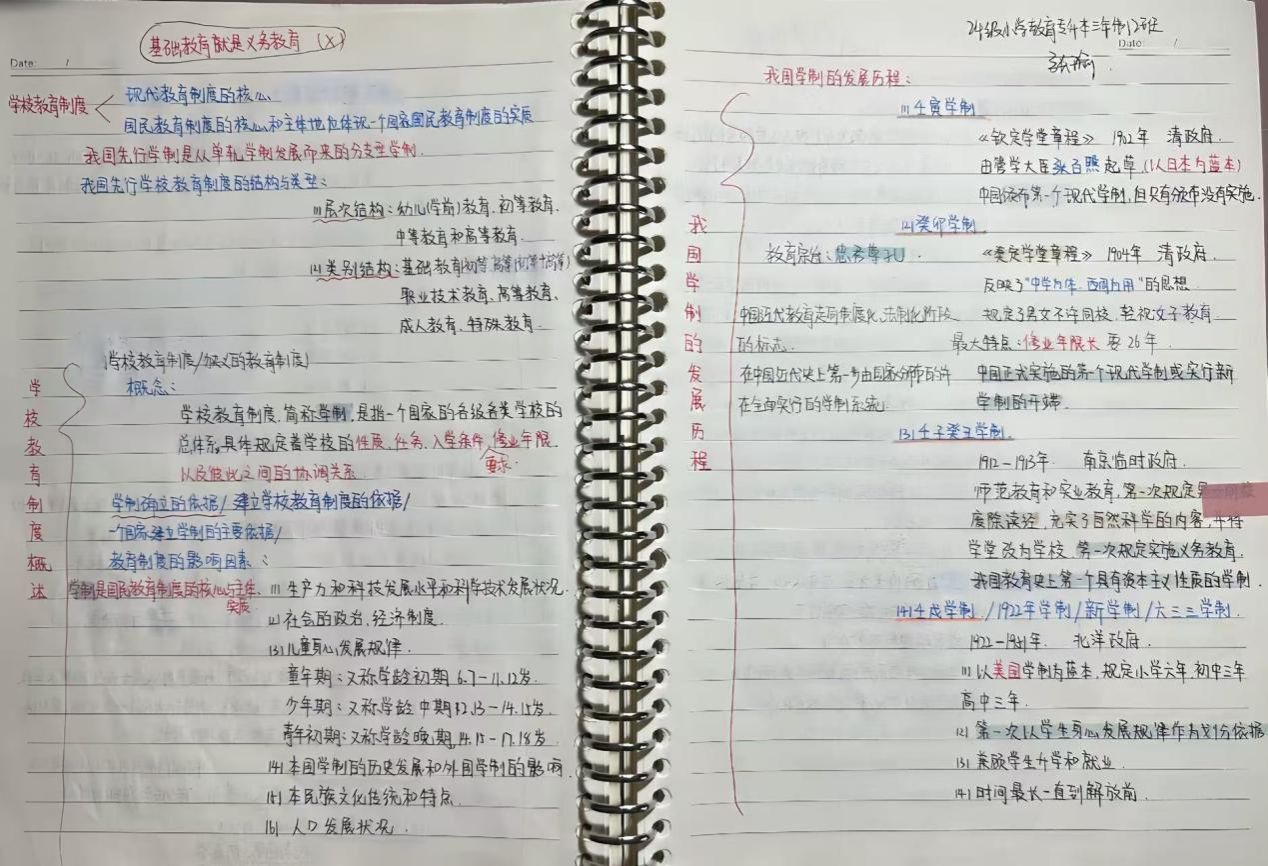 基础教育就是义务教育 (×)
Date: /
学校教育制度
现代教育制度的核心
国民教育制度的核心和主体地位体现一个国家国民教育制度的实质
我国先行学制是从单轨学制发展而来的分支型学制.
我国先行学校教育制度的结构与类型:
(1)层次结构:幼儿(学前)教育.初等教育.
中等教育和高等教育.
(2)类别结构:基础教育
职业技术教育、高等教育、
成人教育、特殊教育.
学校教育制度概述
学校教育制度/狭义的教育制度)
概念:
学校教育制度.简称学制.是指一个国家的各级各类学校的
总体系.具体规定着学校的性质、任务、入学条件,修业年限.
要求.
以及彼此之间的协调关系
学制确立的依据/建立学校教育制度的依据/
一个国家建立学制的主要依据/
教育制度的影响因素:
学制是国民教育制度的核心与主体、
实质
(1)生产力和科技发展水平和科学技术发展状况.
(2)社会的政治、经济制度.
(3)儿童身心发展规律.
童年期:又称学龄初期 6.7-11.12岁.
少年期:又称学龄中期 12.13-14.15岁.
青年初期:又称学龄晚期,14.15-17.18岁.
(4)本国学制的历史发展和外国学制的影响.
(5)本民族文化传统和特点.
(6)人口发展状况.
24级小学教育专升本三年制12班
Date: /
我国学制的发展历程:
我国学制的发展历程
(1)壬寅学制
《钦定学堂章程》 1902年 清政府.
由管学大臣张百熙起草.(以日本为蓝本)
中国颁布第一个现代学制,但只有颁布没有实施.
(2)癸卯学制
教育宗旨:忠君尊孔.
《奏定学堂章程》 1904年 清政府.
反映了"中学为体.西学为用"的思想.
中国近代教育走向制度化、法制化阶段
的标志.
规定了男女不许同校,轻视女子教育.
最大特点:修业年限长 要26年.
在中国近代史上第一步由国家公布的并
在全面实行的学制系统.
中国正式实施的第一个现代学制或实行新
学制的开端.
(3)壬子癸丑学制.
1912-1913年. 南京临时政府.
师范教育和实业教育,第一次规定男
废除读经,充实了自然科学的内容,并将
学堂改为学校.第一次规定实施义务教育.
我国教育史上第一个具有资本主义性质的学制.
(4)壬戌学制./1922年学制/新学制/六三三学制.
1922- 年. 北洋政府.
(1)以美国学制为蓝本.规定小学六年.初中三年
高中三年.
(2)第一次以学生身心发展规律作为划分依据
(3)兼顾学生升学和就业.
(4)时间最长一直到解放前.